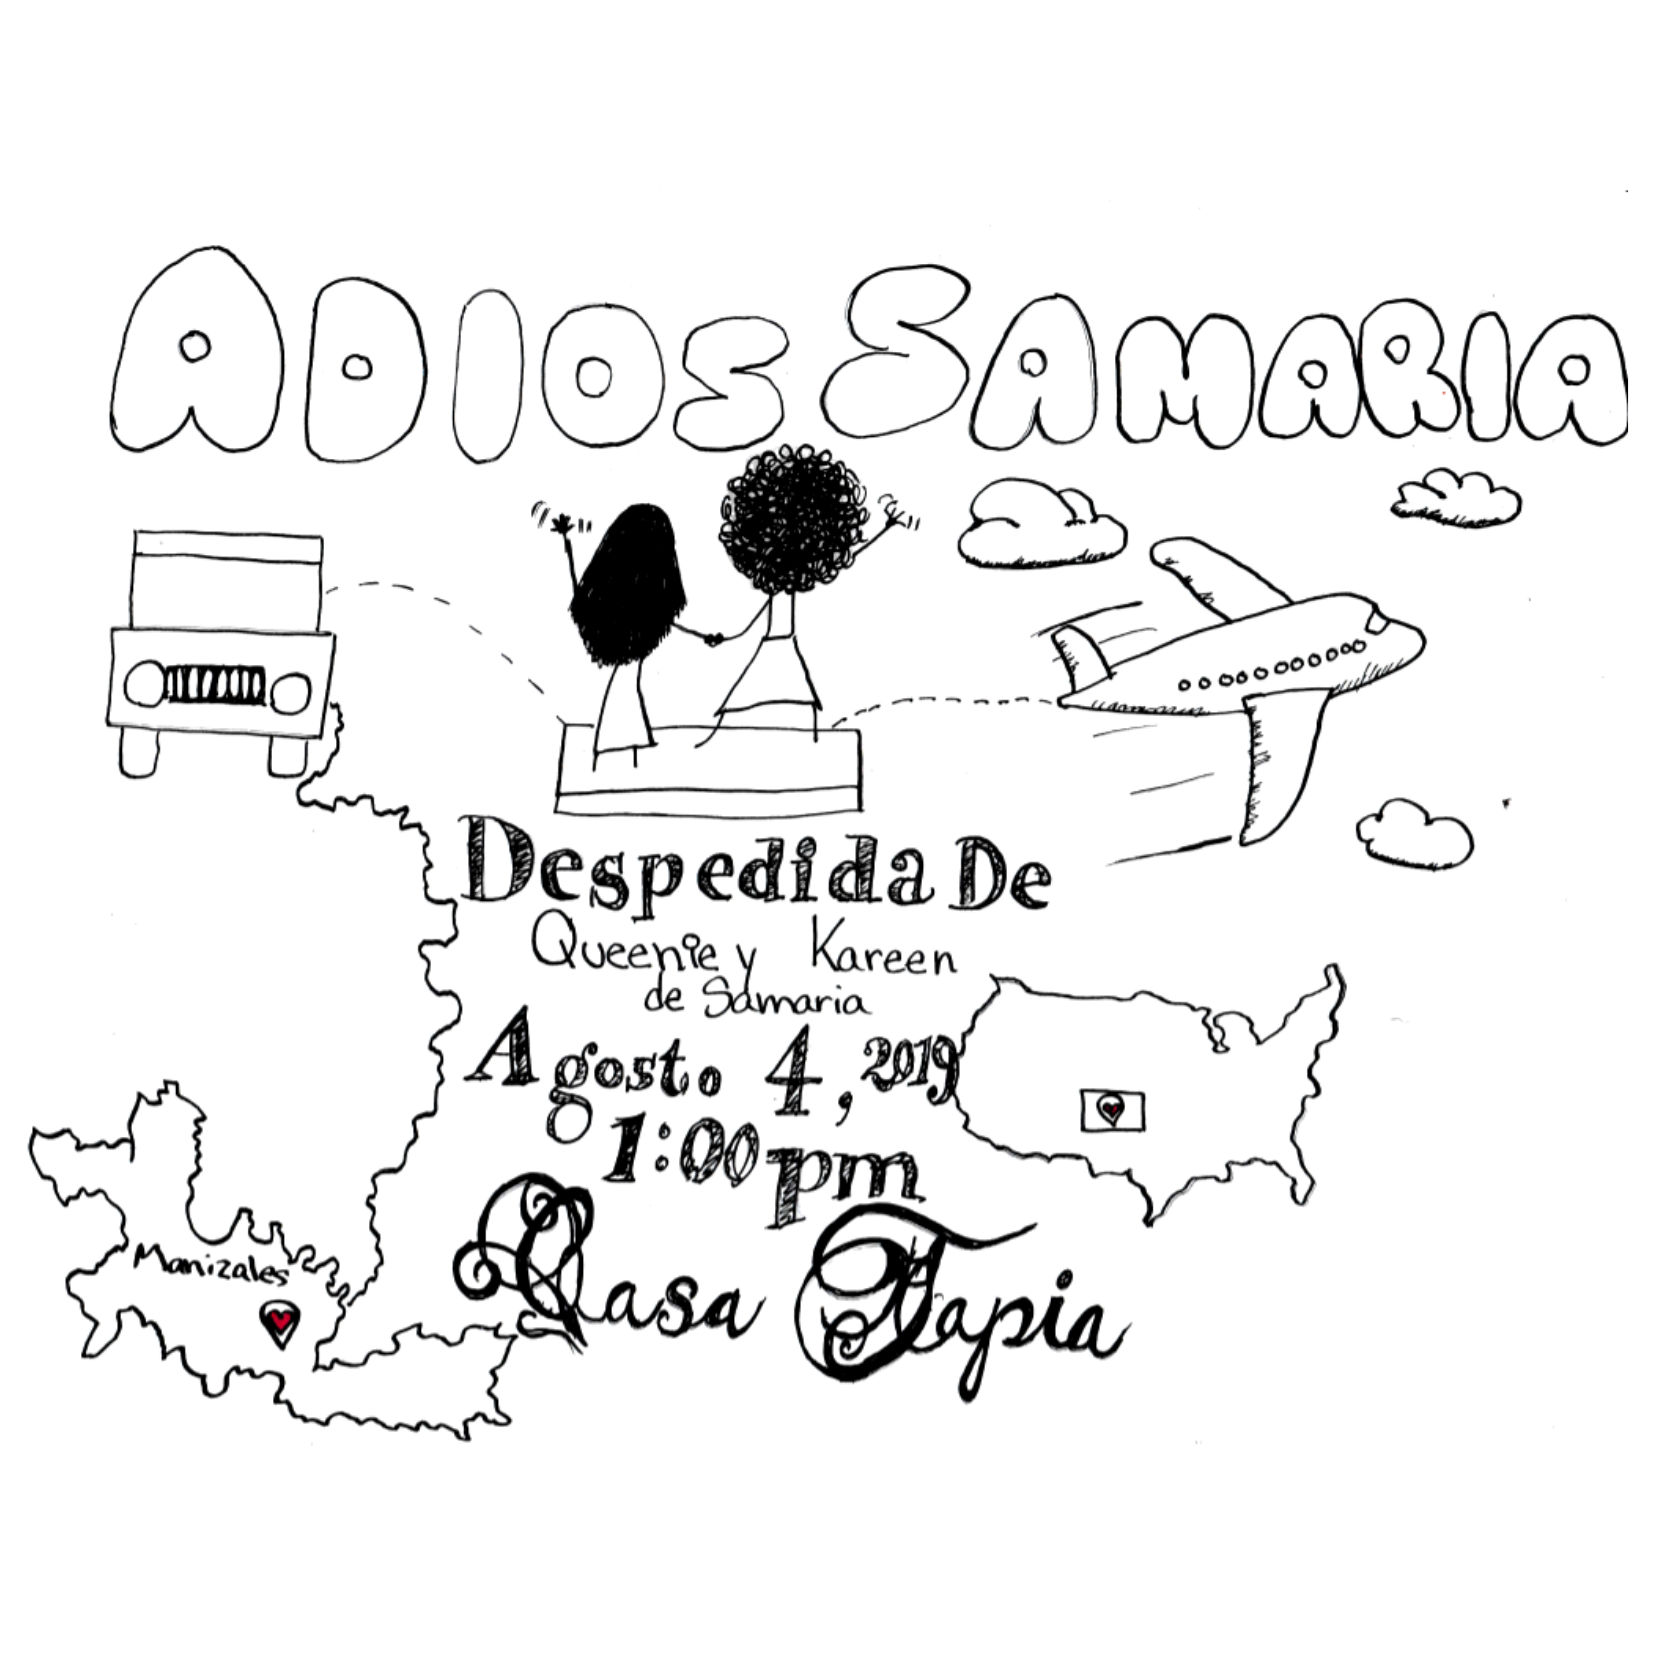 ADIOS SAMARIA
Despedida De
Queenie y Kareen
de Samaria
Agosto 4, 2019
1:00 pm
Casa Tapia
Manizales